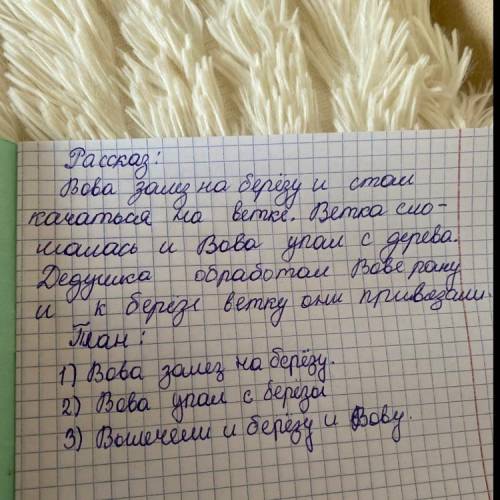 Рассказ:
Вова залез на берёзу и стал
качаться на ветке. Ветка сло-
малась и Вова упал с дерева.
Дедушка обработал Вове рану
и к берёзе ветку они привязали.
План:
1) Вова залез на берёзу.
2) Вова упал с берёзы
3) Вылечели и берёзу и Вову.